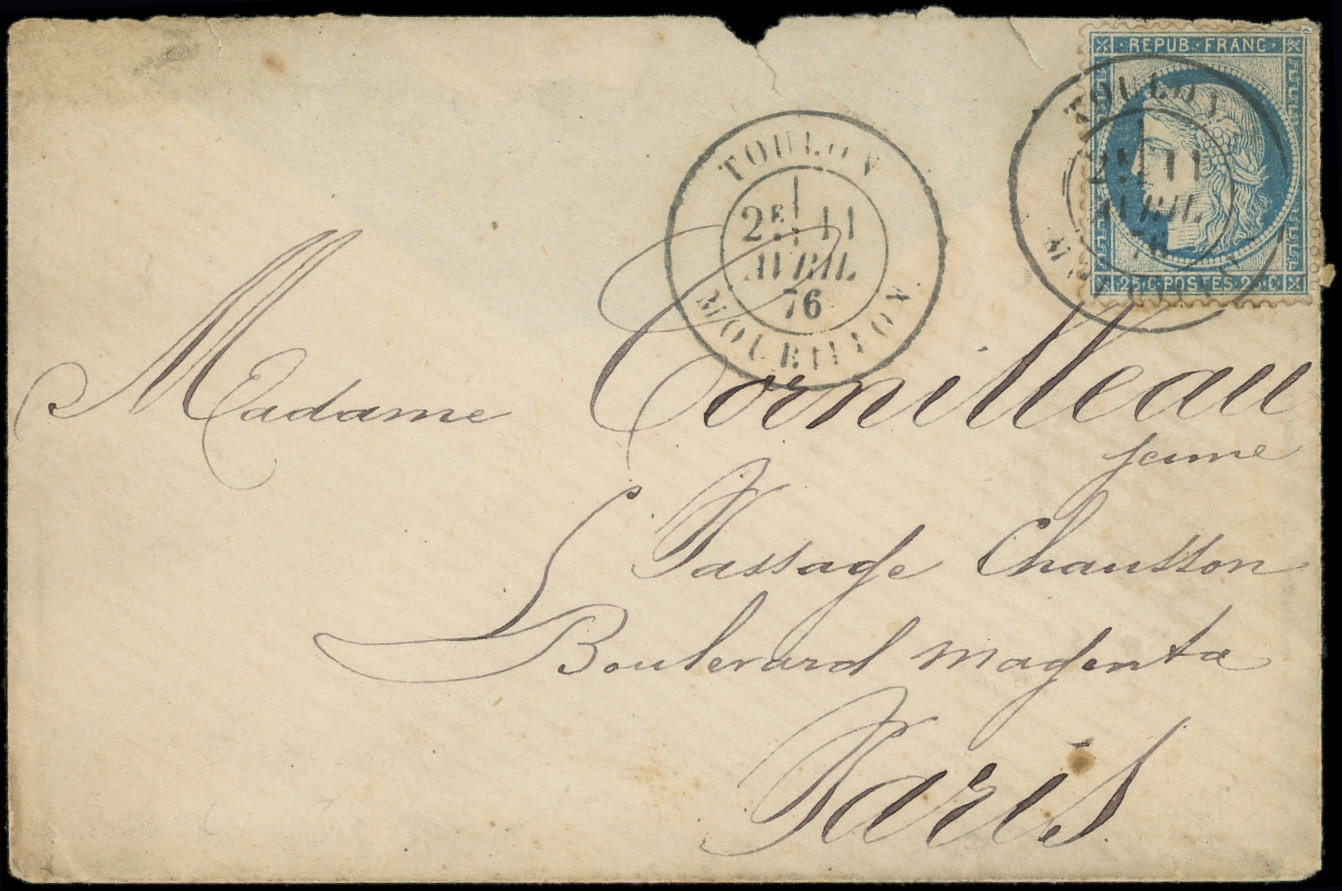 REPUB·FRANC·
25 C·POSTES·25 C
TOULON
2E 11
AVRIL
76
MOURILLON
TOULON
2E 11
AVRIL
76
Madame Cornilleau
jeune
Passage Chausson
5 Boulevard magenta
Paris